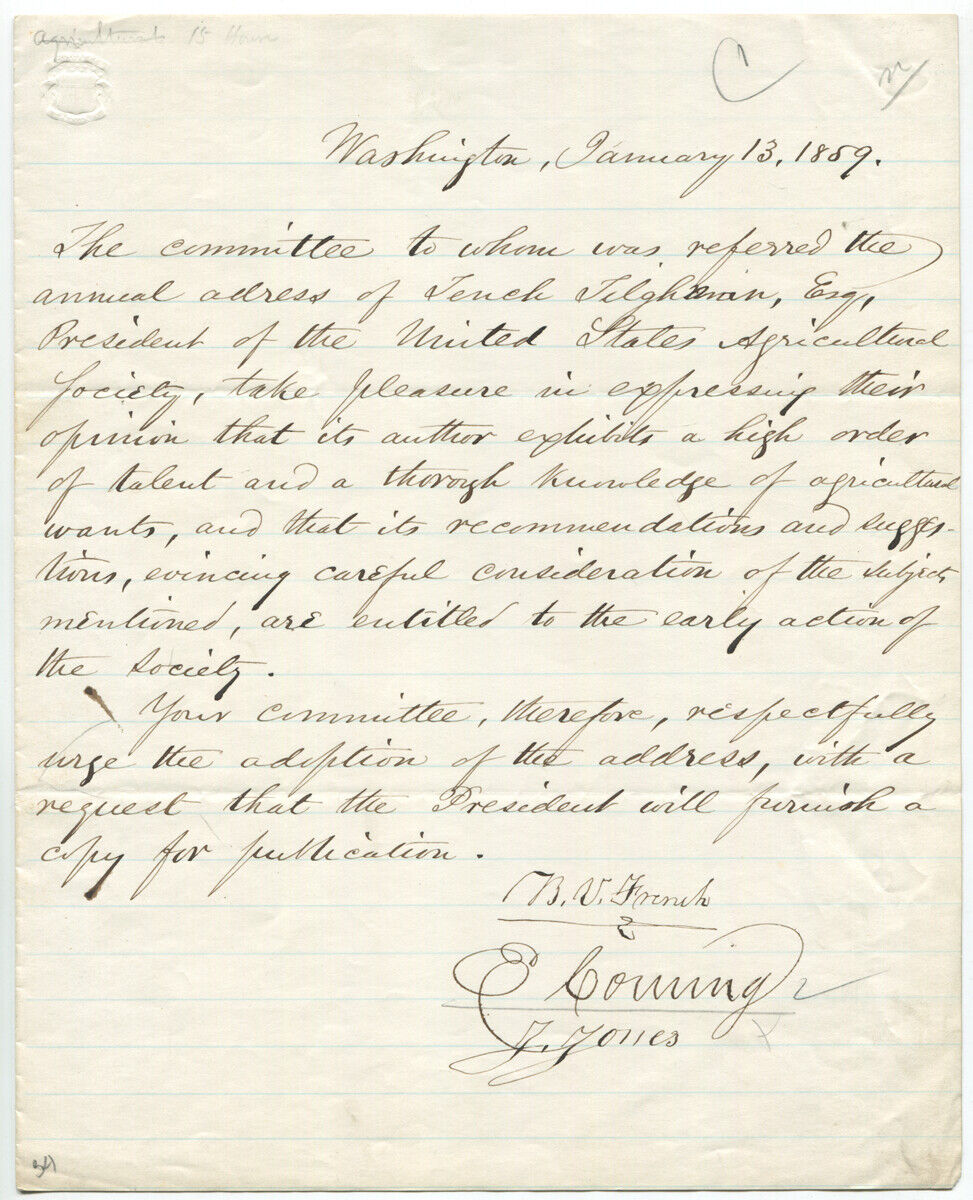 Agricultural 15
Washington, January 13, 1859.
The committee to whom was referred the
annual adress of Tench Tilghman, Esq,
President of the United States Agricultural
Society, take pleasure in expressing their
opinion that its author exhibits a high order
of talent and a thorough knowledge of agricultural
wants, and that its recommendations and sugges-
tions, evincing careful consideration of the subjects
mentioned, are entitled to the early action of
the society.
Your committee, therefore, respectfully
urge the adoption of the address, with a
request that the President will furnish a
copy for publication.
B. V. French
J. Jones